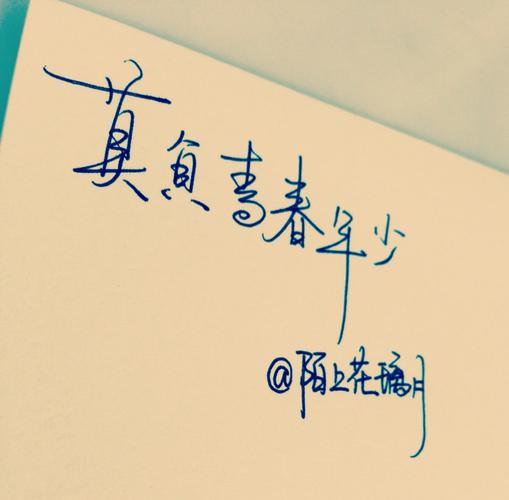 莫负青春年少
@陌上花璃月